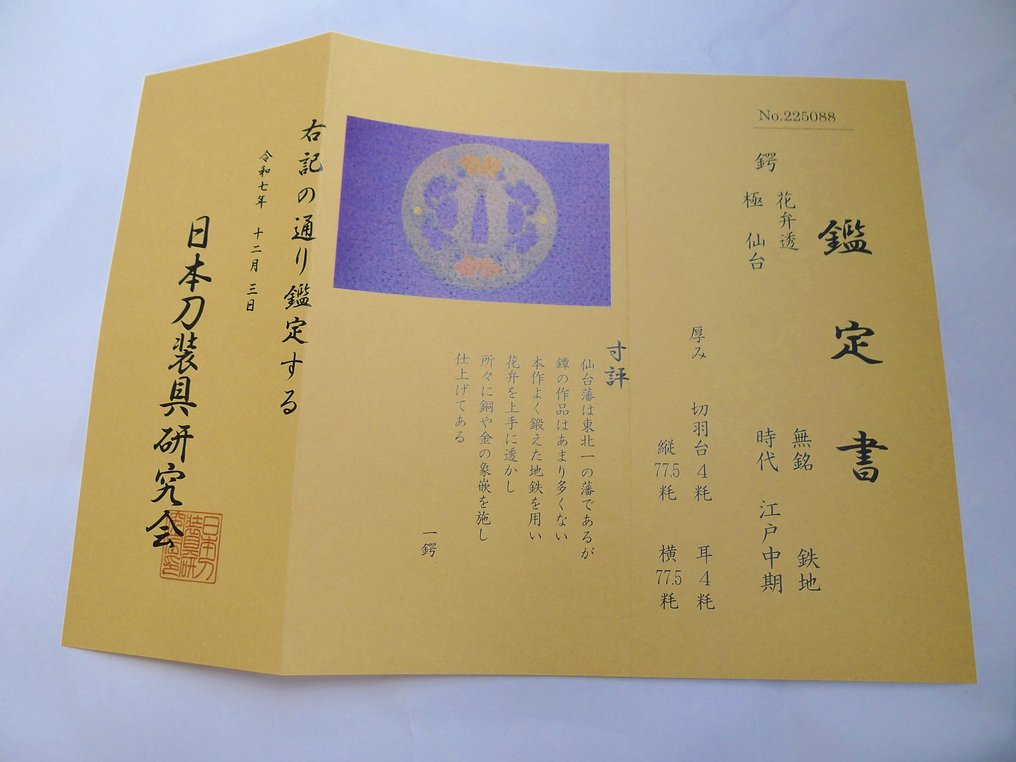 No.225088
鑑定書
鍔 花弁透
極 仙台
無銘 鉄地
時代 江戸中期
厚み 切羽台 4 粍 耳 4 粍
縦 77.5 粍 横 77.5 粍
寸評
仙台藩は東北一の藩であるが
鐔の作品はあまり多くない
本作よく鍛えた地鉄を用い
花弁を上手に透かし
所々に銅や金の象嵌を施し
仕上げてある
一鍔
右記の通り鑑定する
令和七年 十二月 三日
日本刀装具研究会